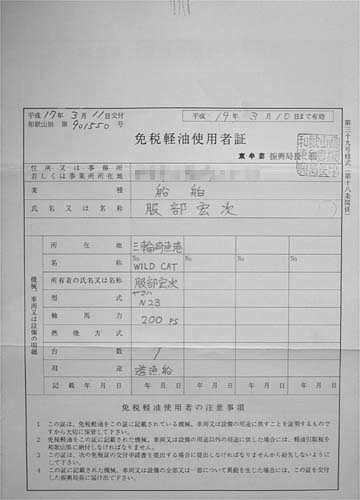 第三十九号様式（第十八条関係）
平成 17年 3月 11日交付
和歌山県 第 901550 号
平成 19年 3月 10日まで有効
免税軽油使用者証
東牟婁 振興局長
住所又は事務所
若しくは事業所所在地
業種 船舶
氏名又は名称 服部宏次
機械、車両又は設備の明細
所在地 三輪崎漁港
名称 No No No No
WILD CAT
所有者の氏名又は名称 服部宏次
型式 ヤマハ
N23
軸馬力 200 PS
燃焼方式
台数 1
用途 遊漁船
記載年月日 年月日 年月日 年月日 年月日
免税軽油使用者の注意事項
1 この証は、免税軽油をこの証に記載されている機械、車両又は設備の用途に供することを証明するもので
すから大切に保管して下さい。
2 免税軽油をこの証に記載された機械、車両又は設備の用途以外の用途に供した場合には、軽油引取税を
和歌山県に納付しなければなりません。
3 この証は、次の免税証の交付申請書を提出する場合に提出しなければなりませんから紛失しないように
して下さい。
4 この証に記載された機械、車両又は設備の全部又は一部について異動を生じた場合には、この証を交付
した振興局長に届け出て下さい。